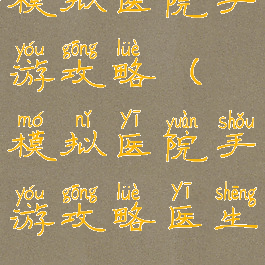 模拟医院手
yóu gōng lüè
游攻略（
mó nǐ yī yuàn shǒu
模拟医院手
yóu gōng lüè yī shēng
游攻略医生